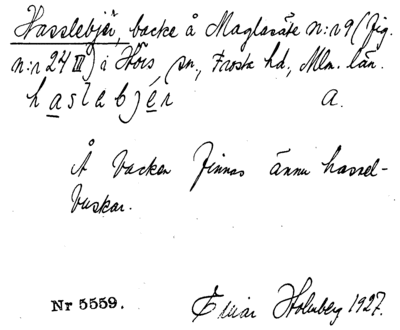 Hasslebjär, backe å Maglasäte N:r 9 (fig.
n:r 24 III) i Hörs sn, Frosta hd, Mlm. län.
haslabjér a.
Å backen finnas ännu hassel-
buskar.
Nr 5559. Einar Holmberg 1927.